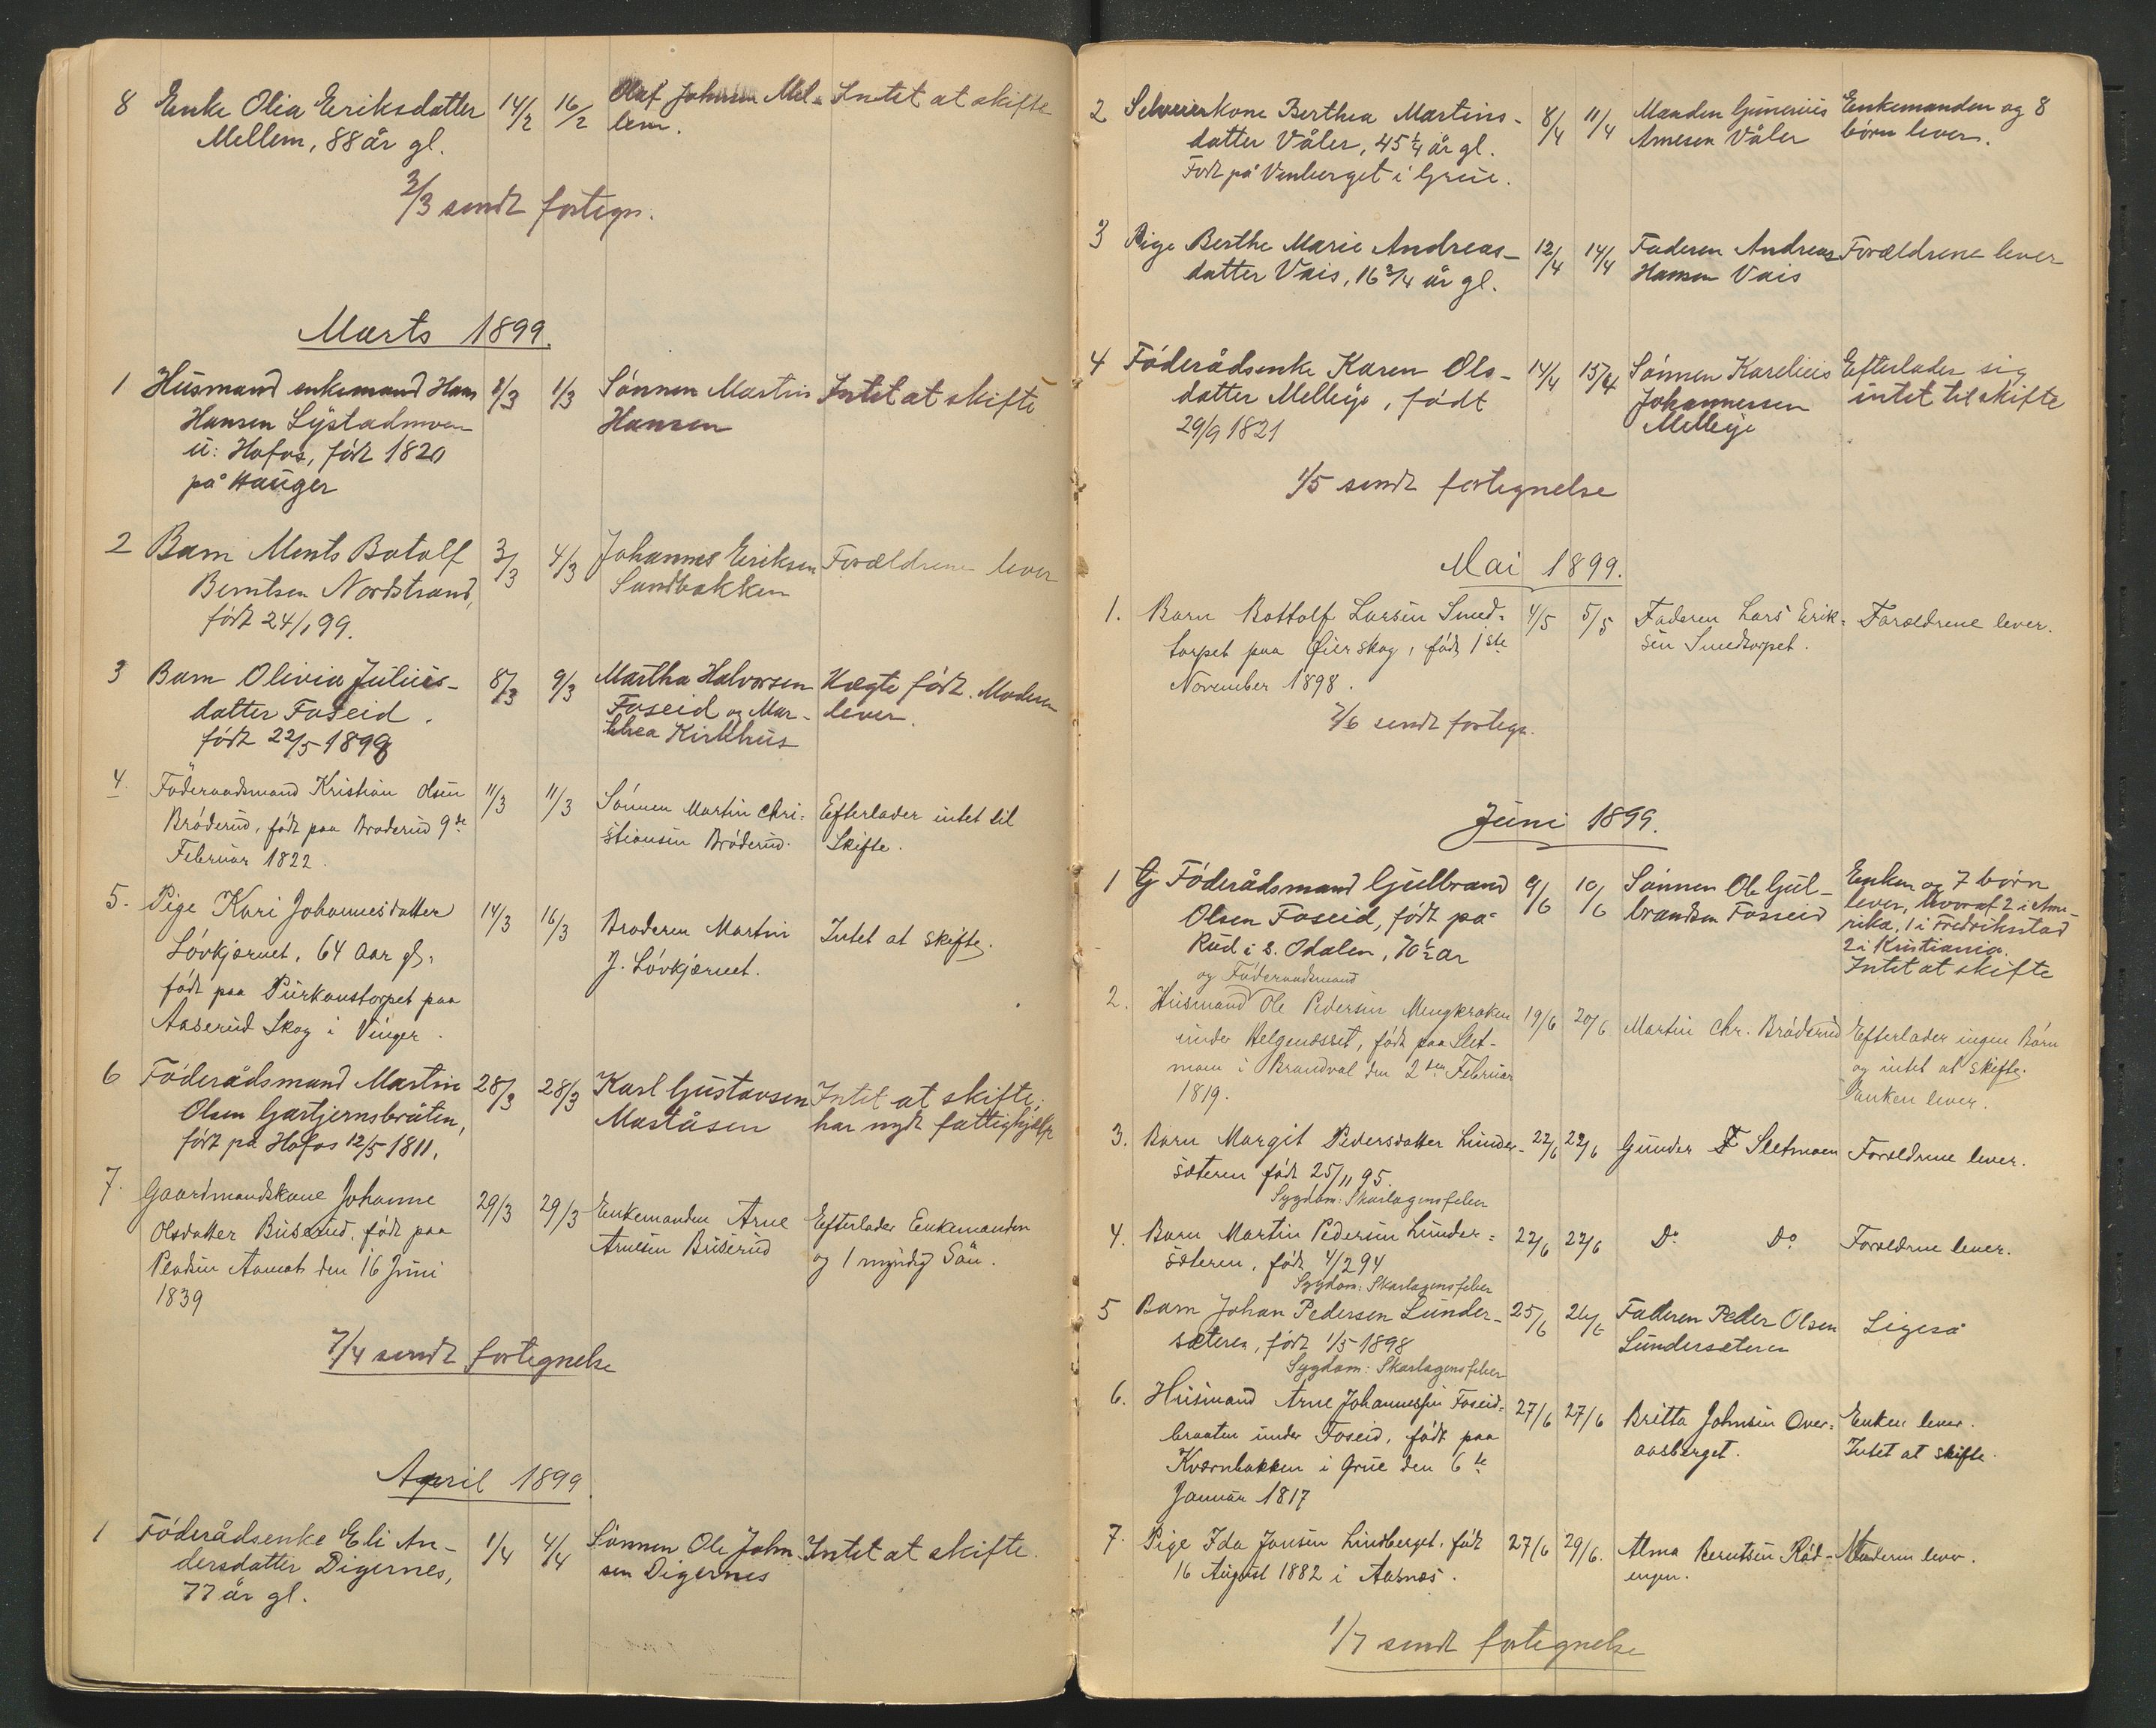 8 Enke Olia Eriksdatter 14/2 16/2 Olaf Johnsen Mel- Intet at skifte
Mellem, 88 år gl. lem.
3/3 sendt fortegn.
Marts 1899.
1 Husmand enkemand Hans 1/3 Sønnen Martin Intet at skifte
Hansen Lystadmoen Hansen
u: Hofos, født 1820
på Hauger
2 Barn Ments Botolf 3/3 4/3 Johannes Eriksen Forældrene lever
Berntsen Nordstrand, Sandbakken
født 24/1 99.
3 Barn Olivia Julius- 8/3 9/3 Martha Halvorsen Uægte født. Moderen
datter Foseid. Foseid og Mar- lever.
født 22/5 1898 thea Kirkhus
4. Föderaadsmand Kristian Olsen 11/3 11/3 Sønnen Martin Chri- Efterlader intet til
Bröderud, født paa Broderud 9de stiansen Bröderud. Skifte.
Februar 1822.
5. Pige Kari Johannesdatter 14/3 16/3 Broderen Martin Intet at skifte.
Lövkjernet, 64 Aar gl, J. Lövkjernet.
født paa Purkonstorpet paa
Aaserud Skog i Vinger.
6 Föderådsmand Martin 28/3 28/3 Karl Gustavsen Intet at skifte;
Olsen Gartjernsbråten, Maståsen har nydt fattighjelp
født på Hofos 12/5 1811.
7. Gaardmandskone Johanne 29/3 29/3 Enkemanden Arne Efterlader Enkemanden
Olsdatter Buserud, født paa Arnesen Buserud og 1 myndig Søn.
Pladsen Aamot den 16 Juni
1839
7/4 sendt fortegnelse
April 1899.
1 Föderådsenke Eli An- 1/4 4/4 Sønnen Ole John- Intet at skifte.
dersdatter Digernes, sen Digernes
77 år gl.
2 Selveierkone Berthea Martins- 8/4 11/4 Manden Gunerius Enkemanden og 8
datter Våler, 45 1/4 år gl. Arnesen Våler börn lever.
Født på Venberget i Grue.
3 Pige Berthe Marie Andreas- 12/4 14/4 Faderen Andreas Forældrene lever
datter Vais, 16 3/4 år gl. Hansen Vais
4 Föderådsenke Karen Ols- 14/4 15/4 Sønnen Karelius Efterlader sig
datter Melleye, født Johannessen intet til skifte
29/9 1821 Melleye
1/5 sendt fortegnelse
Mai 1899.
1. Barn Bottolf Larsen Smed- 4/5 5/5 Faderen Lars Erik- Forældrene lever.
torpet paa Øierskog, født 1ste sen Smedtorpet.
November 1898.
2/6 sendt fortegn.
Juni 1899.
1 Föderådsmand Gulbrand 9/6 10/6 Sønnen Ole Gul- Enken og 7 börn
Olsen Foseid, født på brandsen Foseid lever, hvoraf 2 i Ame-
Rud i S. Odalen, 70 1/2 år rika, 1 i Fredrikstad
2 i Kristiania.
Intet at skifte
og Föderaadsmand
2. Husmand Ole Pedersen Mengkroken 19/6 20/6 Martin Chr. Bröderud Efterlader ingen Börn
under Helgenesset, født paa Slet- og intet at skifte.
moen i Brandval den 2den Februar Enken lever.
1819.
3. Barn Margit Pedersdatter Lunder- 22/6 22/6 Gunder Sletmoen Forældrene lever.
sæteren født 25/11 95.
Sygdom: Skarlagensfeber
4. Barn Martin Pedersen Lunder- 22/6 22/6 Do Do Forældrene lever.
sæteren, født 4/2 94
Sygdom: Skarlagensfeber
5 Barn Johan Pedersen Lunder- 25/6 26/6 Faderen Peder Olsen Ligeså
sæteren, født 1/5 1898 Lundersæteren
Sygdom: Skarlagensfeber
6. Husmand Arne Johannessen Foseid- 27/6 27/6 Britta Johnsen Over- Enken lever.
braaten under Foseid, født paa aasberget. Intet at skifte.
Kværnbakken i Grue den 6te
Januar 1817
7. Pige Ida Jonsen Lindberget, født 27/6 29/6. Alma Berntsen Röd- Moderen lever.
16 August 1882 i Aasnes. engen.
1/7 sendt fortegnelse